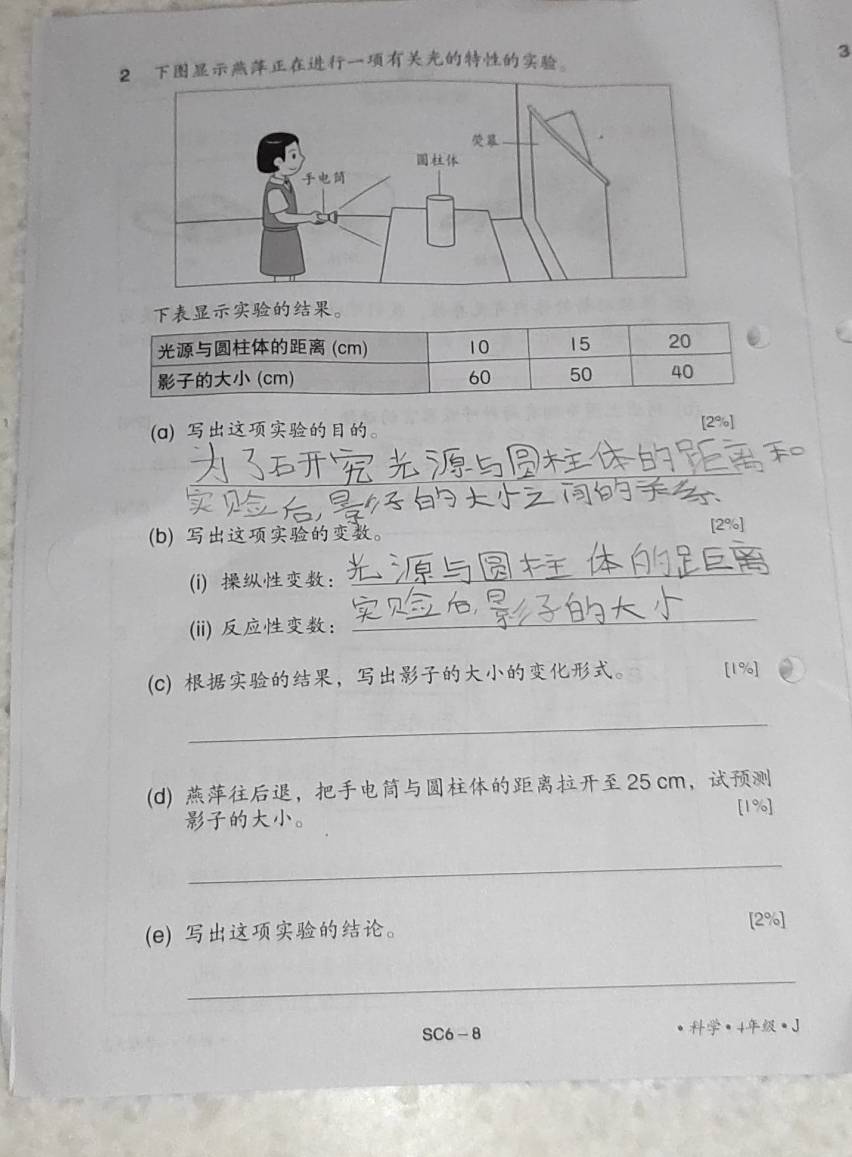 3
2 下图显示燕萍正在进行一项有关光的特性的实验。
荧幕
圆柱体
手电筒
下表显示实验的结果。
光源与圆柱体的距离 (cm) 10 15 20
影子的大小 (cm) 60 50 40
(a) 写出这项实验的目的。 [2%]
为了研究光源与圆柱体的距离和
实验后,影子的大小之间的关系.
(b) 写出这项实验的变数。 [2%]
(i) 操纵性变数：光源与圆柱体的距离
(ii) 反应性变数：实验后,影子的大小
(c) 根据实验的结果，写出影子的大小的变化形式。 [1%]
(d) 燕萍往后退，把手电筒与圆柱体的距离拉开至 25 cm，试预测
影子的大小。 [1%]
(e) 写出这项实验的结论。 [2%]
SC6 – 8
• 科学 • 4年级 • J